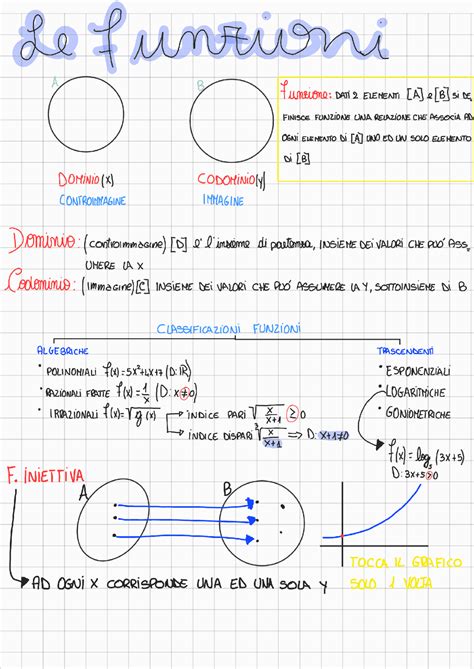 Le Funzioni
A
B
Funzione: DATI 2 ELEMENTI [A] e [B] SI DE
FINISCE FUNZIONE UNA RELAZIONE CHE ASSOCIA AD
OGNI ELEMENTO DI [A] UNO ED UN SOLO ELEMENTO
DI [B]
DOMINIO (X)
CONTROIMMAGINE
CODOMINIO(y)
IMMAGINE
Dominio: (controimmagine) [D] e' l'insieme di partenza, INSIEME DEI VALORI CHE PUO' ASS
UMERE LA X
Codominio: (Immagine)[C] INSIEME DEI VALORI CHE PUO' ASSUMERE LA Y, SOTTOINSIEME DI B
CLASSIFICAZIONI FUNZIONI
ALGEBRICHE
• POLINOMIALI f(x)=5x²+4x+7 (D:ℝ)
• RAZIONALI FRATTE f(x)=1/x (D: x≠0)
• IRRAZIONALI f(x)=√g(x)
INDICE PARI √(x/(x+1)) ≥0
INDICE DISPARI ³√(x/(x+1)) ⟹ D: x+1≠0
TRASCENDENTI
• ESPONENZIALI
• LOGARITMICHE
• GONIOMETRICHE
f(x)=log₅(3x+5)
D: 3x+5>0
F. INIETTIVA
A
B
TOCCA IL GRAFICO
SOLO 1 VOLTA
AD OGNI X CORRISPONDE UNA ED UNA SOLA Y